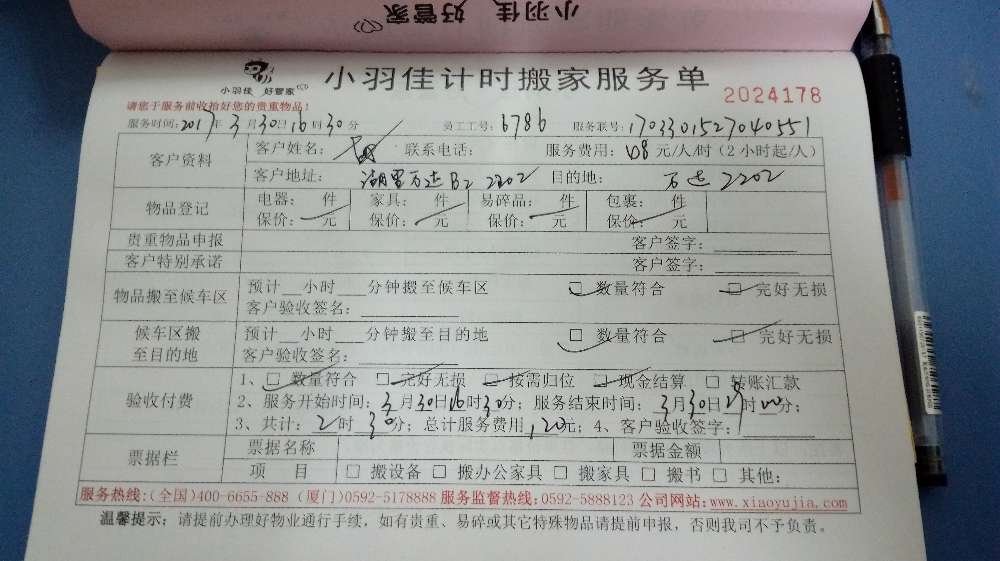 小羽佳 好管家
小羽佳 好管家 小羽佳计时搬家服务单
2024178
请您于服务前收拾好您的贵重物品!
服务时间:2017年3月30日16时30分 员工工号:6786 服务联号:1703301527040551
客户资料 客户姓名: 联系电话: 服务费用: 元/人/时(2小时起/人)
客户地址: 湖里万达B2 2202 目的地: 万达2202
物品登记 电器: 件 家具: 件 易碎品: 件 包裹: 件
保价: 元 保价: 元 保价: 元 保价: 元
贵重物品申报 客户签字:
客户特别承诺 客户签字:
物品搬至候车区 预计__小时___分钟搬至候车区 □ 数量符合 □ 完好无损
客户验收签名:
候车区搬至目的地 预计__小时___分钟搬至目的地 □ 数量符合 □ 完好无损
客户验收签名:
验收付费 1、□ 数量符合 □ 完好无损 □ 按需归位 □ 现金结算 □ 转账汇款
2、服务开始时间:3月30日16时30分;服务结束时间:3月30日 时00分;
3、共计:2时30分;总计服务费用120元;4、客户验收签字:
票据栏 票据名称 票据金额
项 目 □ 搬设备 □ 搬办公家具 □ 搬家具 □ 搬书 □ 其他:
服务热线:(全国)400-6655-888 (厦门)0592-5178888 服务监督热线:0592-5888123 公司网站:www.xiaoyujia.com
温馨提示:请提前办理好物业通行手续,如有贵重、易碎或其它特殊物品请提前申报,否则我司不予负责。